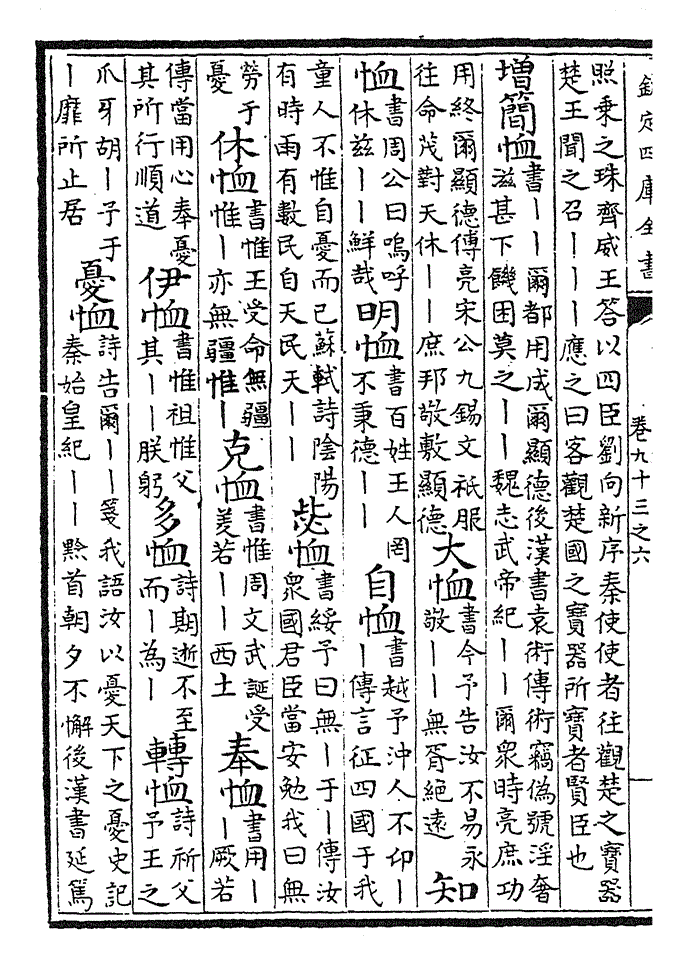 欽定四庫全書 卷九十三之六
照乘之珠齊威王答以四臣劉向新序秦使使者往觀楚之寶器
楚王聞之召———應之曰客觀楚國之寶器所寶者賢臣也
増簡恤 書——爾都用成爾顯德後漢書袁術傳術竊偽號淫奢
滋甚下饑困莫之——魏志武帝紀——爾衆時亮庶功
用終爾顯德傅亮宋公九錫文祗服
往命茂對天休——庶邦敬敷顯德
大恤 書今予告汝不易永
敬——無胥絶遠
知
恤 書周公曰嗚呼
休兹——鮮哉
明恤 書百姓王人罔
不秉德——
自恤 書越予沖人不卬—
—傳言征四國于我
童人不惟自憂而已蘇軾詩陰陽
有時雨有數民自天民天——
毖恤 書綏予曰無—于—傳汝
衆國君臣當安勉我曰無
勞于
憂
休恤 書惟王受命無疆
惟—亦無疆惟—
克恤 書惟周文武誕受
羑若——西土
奉恤 書用—
—厥若
傳當用心奉憂
其所行順道
伊恤 書惟祖惟父
其——朕躬
多恤 詩期逝不至
而—為—
轉恤 詩祈父
予王之
爪牙胡—予于
—靡所止居
憂恤 詩告爾——箋我語汝以憂天下之憂史記
秦始皇紀——黔首朝夕不懈後漢書延篤